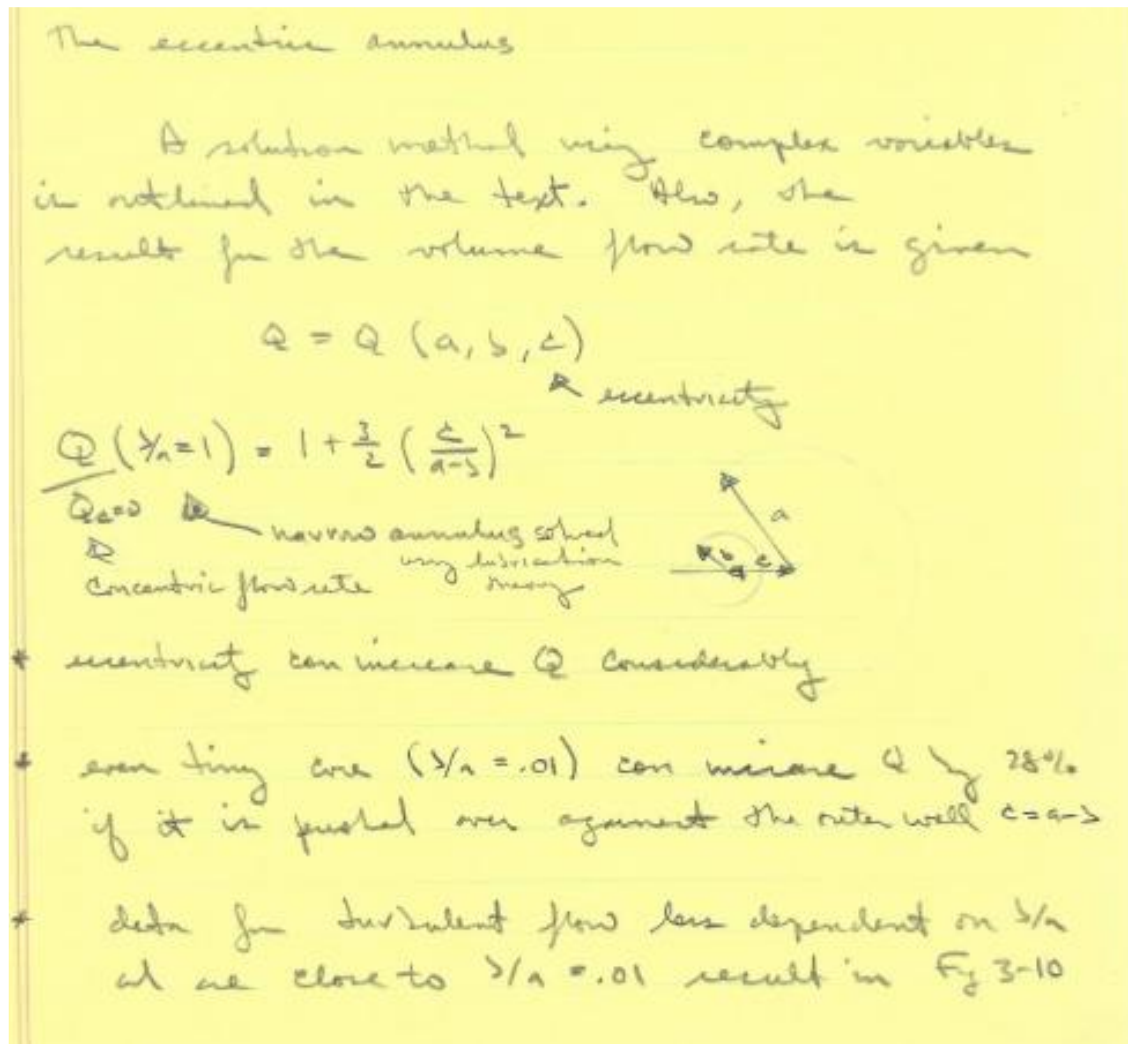 The eccentric annulus
A solution method using complex variables
is outlined in the text. Also, the
results for the volume flow rate is given
Q = Q (a, b, c)
eccentricity
Q/Qc=0 (b/a=1) = 1 + 3/2 (c/(a-b))^2
narrow annulus solved
using lubrication
theory
concentric flow rate
a
b
c
* eccentricity can increase Q considerably
* even tiny core (b/a = .01) can increase Q by 28%
if it is pushed over against the outer wall c=a-b
* data for turbulent flow less dependent on b/a
and are close to b/a = .01 result in Fig 3-10